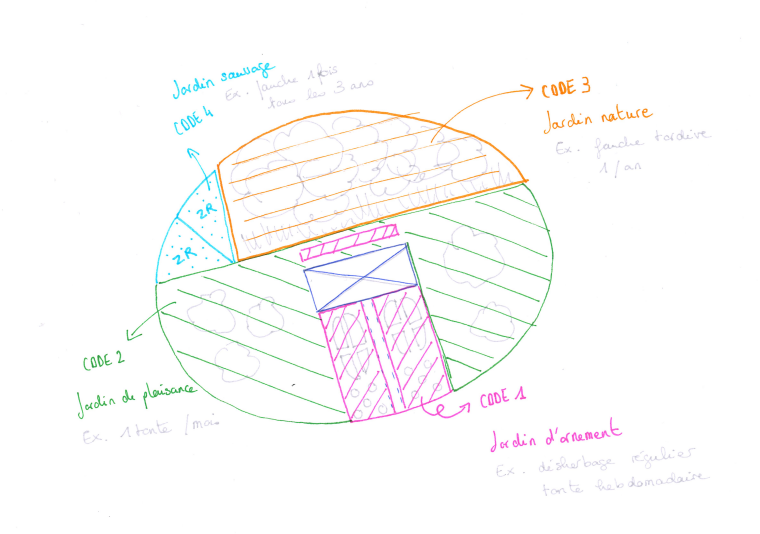 Jardin sauvage
Ex. fauche 1 fois
tous les 3 ans
CODE 4
CODE 3
Jardin nature
Ex. fauche tardive
1/an
ZR
ZR
CODE 2
Jardin de plaisance
Ex. 1 tonte /mois
CODE 1
Jardin d'ornement
Ex. désherbage régulier
tonte hebdomadaire